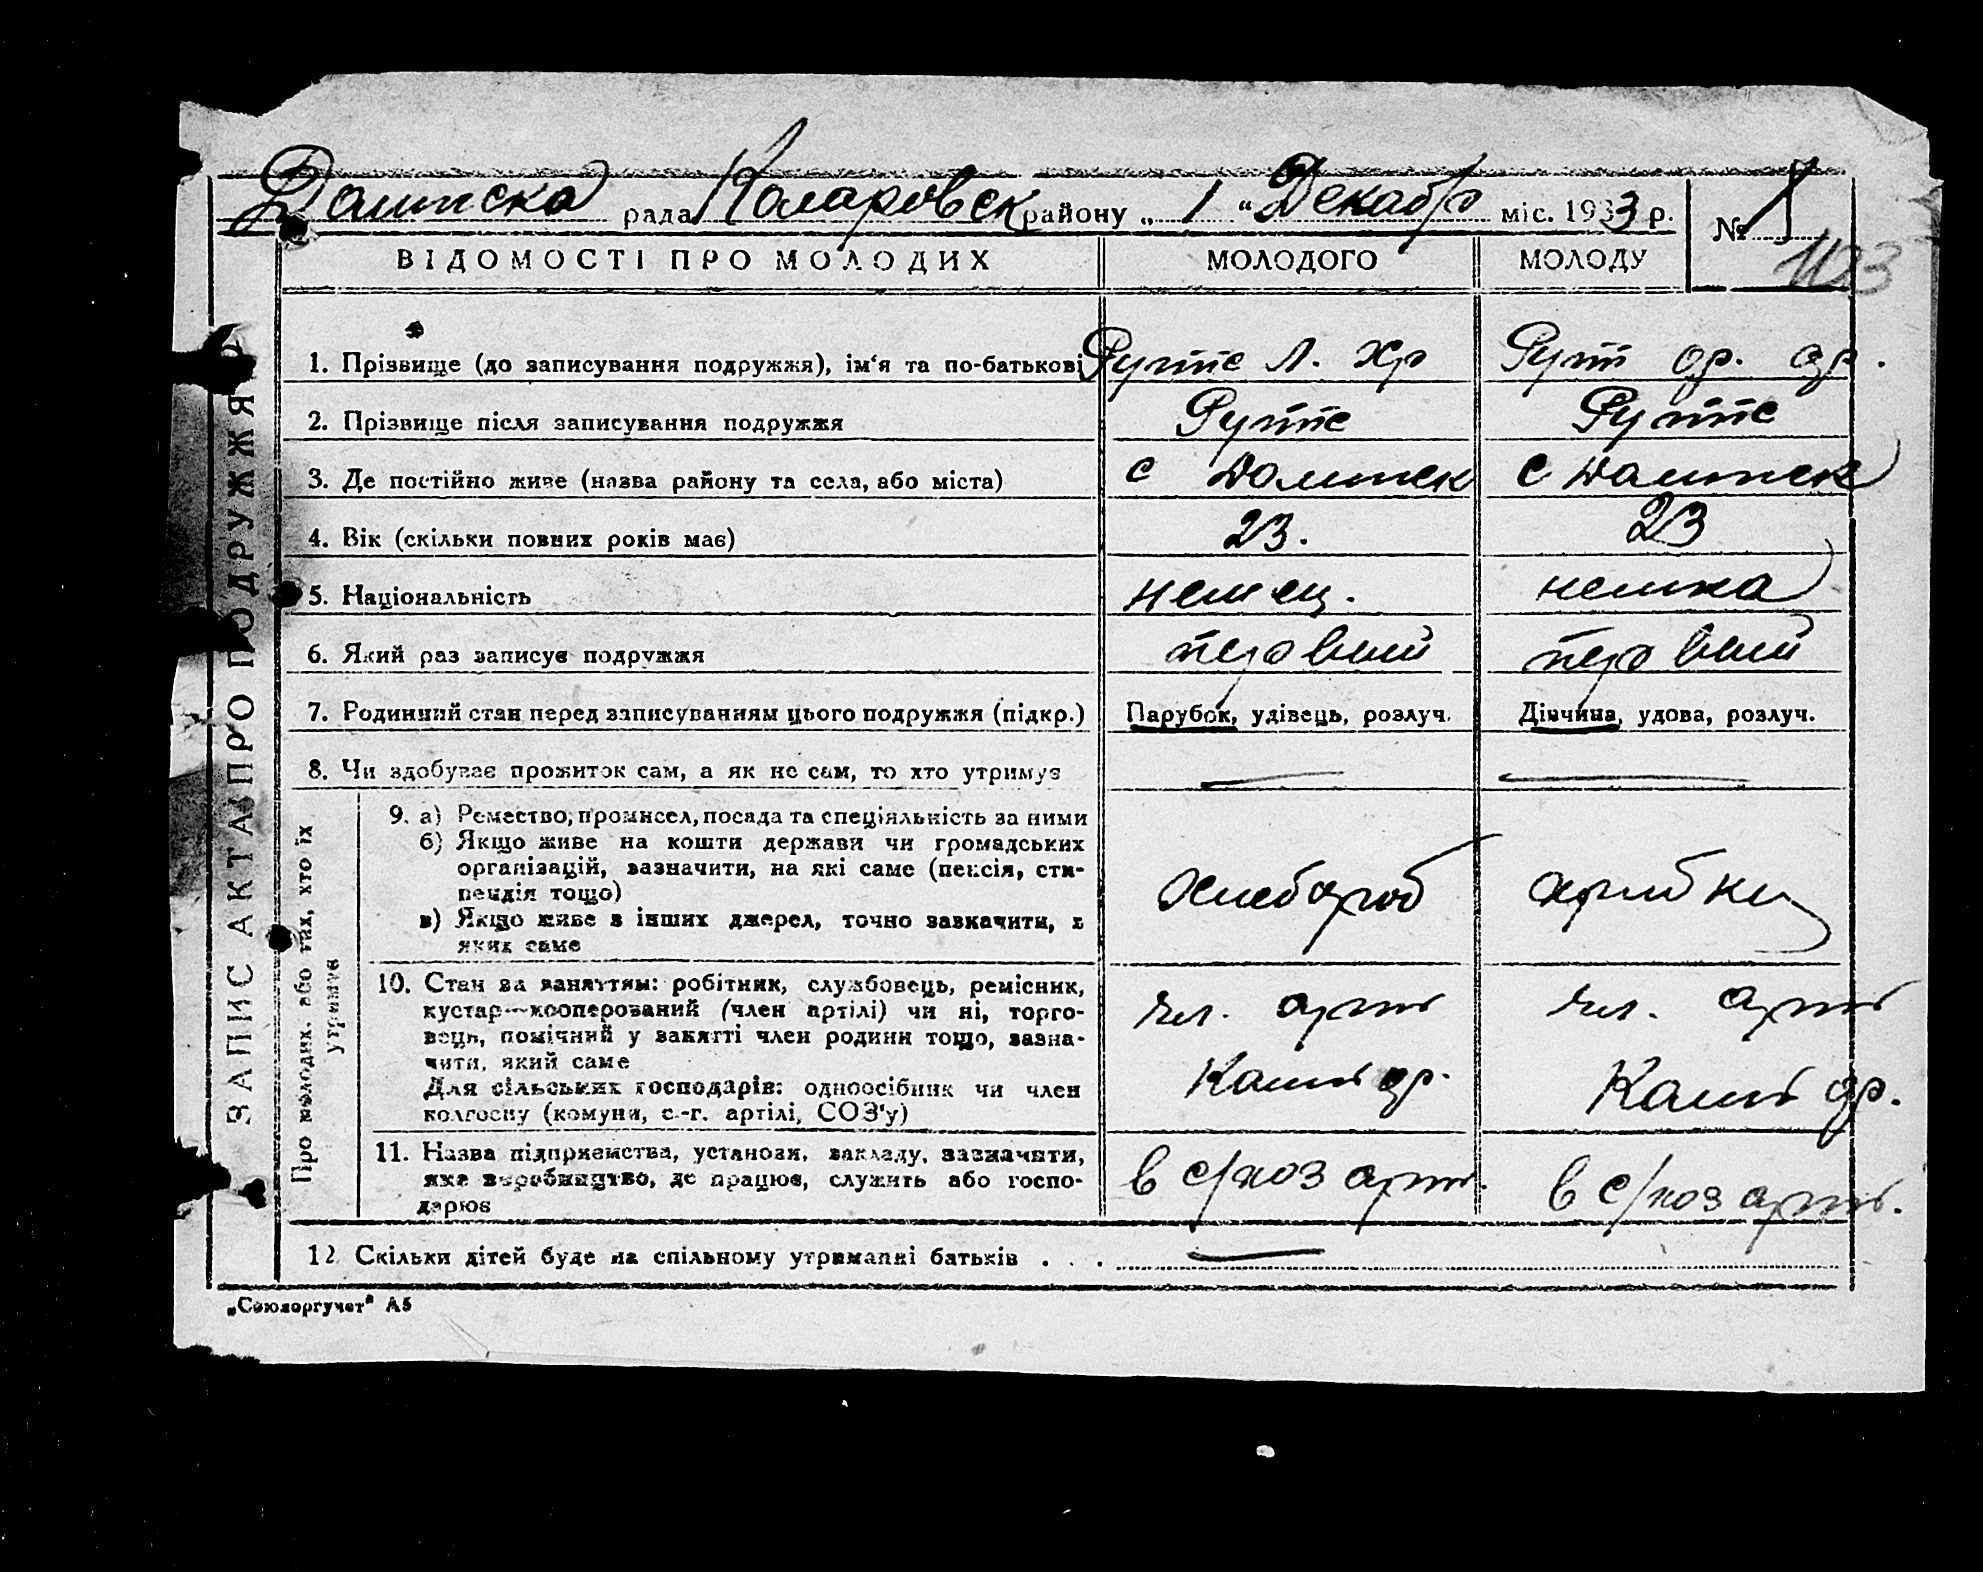 рада Коларовск району „ 1 “ Декабр міс. 1933 р. №
1123
ВІДОМОСТІ ПРО МОЛОДИХ МОЛОДОГО МОЛОДУ
ЗАПИС АКТА ПРО ПОДРУЖЖЯ
1. Прізвище (до записування подружжя), ім‘я та по-батькові Л. Хр
2. Прізвище після записування подружжя
3. Де постійно живе (назва району та села, або міста) с с
4. Вік (скільки повних років має) 23. 23
5. Національність немец. немка
6. Який раз записує подружжя первый первый
7. Родинний стан перед записуванням цього подружжя (підкр.) Парубок, удівець, розлуч. Дівчина, удова, розлуч.
8. Чи здобуває прожиток сам, а як не сам, то хто утримує
Про молодих, або тих, хто їх
утримує
9. а) Ремество, промисел, посада та спеціяльність за ними
б) Якщо живе на кошти держави чи громадських
організацій, зазначити, на які саме (пенсія, сти-
пендія тощо)
в) Якщо живе з інших джерел, точно зазначити, з
яких саме
хлебороб
10. Стан за заняттям: робітник, службовець, ремісник,
кустар—кооперований (член артілі) чи ні, торго-
вець, помічний у занятті член родини тощо, зазна-
чити, який саме
Для сільських господарів: одноосібник чи член
колгоспу (комуни, с.-г. артілі, СОЗ‘у)
чл. арть чл. арть
11. Назва підприємства, установи, закладу, зазначити,
яке виробництво, де працює, служить або госпо-
дарює
в с/хоз арть. в с/хоз арть.
12. Скільки дітей буде на спільному утриманні батьків . . .
„Союзоргучет“ А5